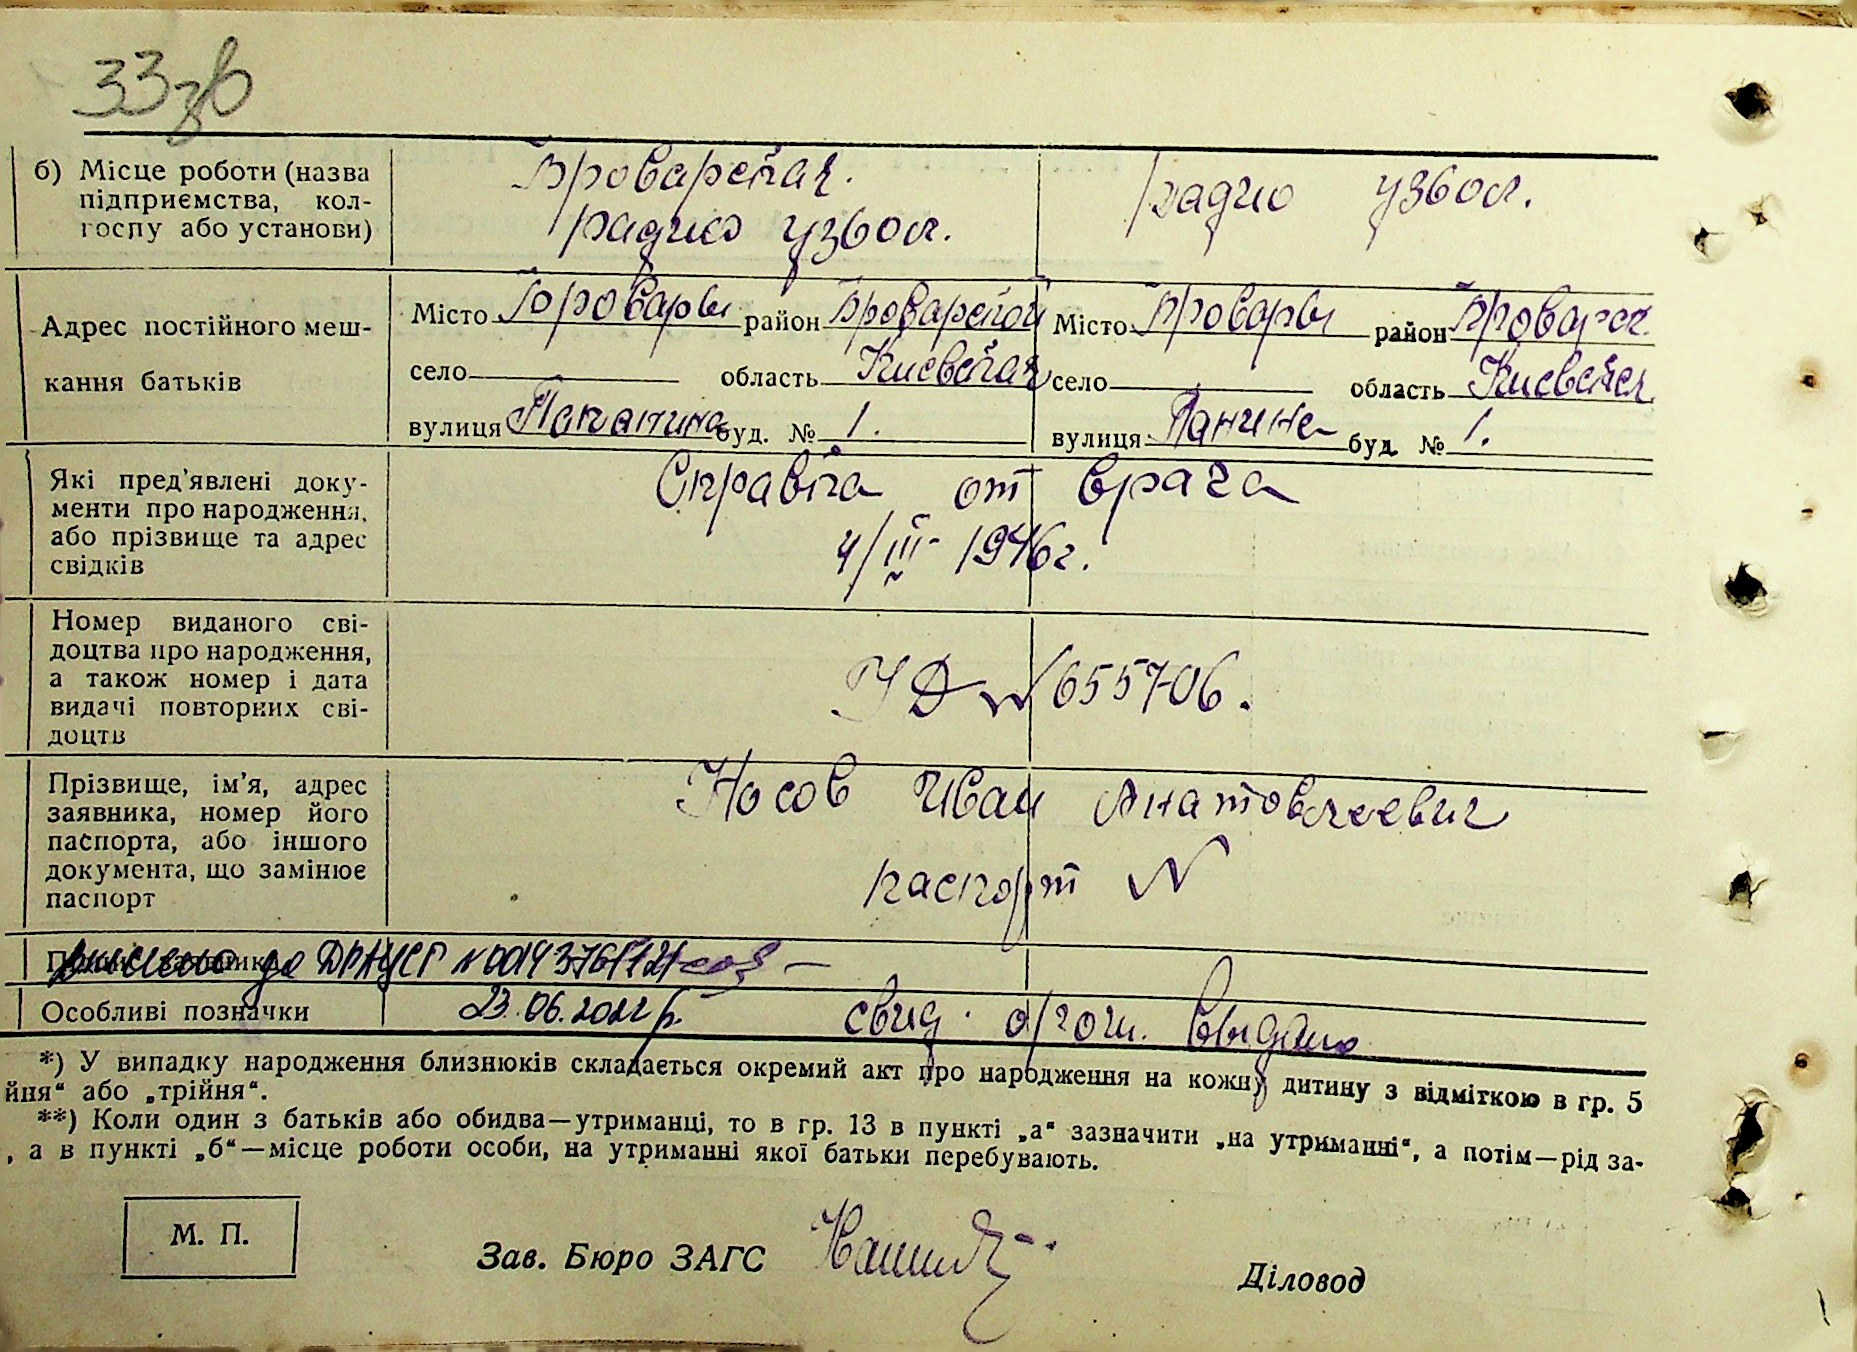 33зв
б) Місце роботи (назва
підприємства, кол-
госпу або установи)
Броварская.
радио узвол.
радио узвол.
Адрес постійного меш-
кання батьків
Місто Бровары район Броварской
село область Киевская
вулиця Папанина буд. № 1.
Місто Бровары район Броварск.
село область Киевская
вулиця Панина буд. № 1.
Які пред’явлені доку-
менти про народження,
або прізвище та адрес
свідків
Справка от врача
4/III- 1946г.
Номер виданого сві-
доцтва про народження,
а також номер і дата
видачі повторних сві-
доцтв
УД № 655706.
Прізвище, ім’я, адрес
заявника, номер його
паспорта, або іншого
документа, що замінює
паспорт
Носов Иван
паспорт N
Підпис заявника
внесено до ДРАЦСГ
Особливі позначки
23.06.2021 р.
свид. выдано
*) У випадку народження близнюків складається окремий акт про народження на кожну дитину з відміткою в гр. 5
йня“ або „трійня“.
**) Коли один з батьків або обидва—утриманці, то в гр. 13 в пункті „а“ зазначити „на утриманні“, а потім—рід за-
, а в пункті „б“—місце роботи особи, на утриманні якої батьки перебувають.
М. П.
Зав. Бюро ЗАГС
Діловод